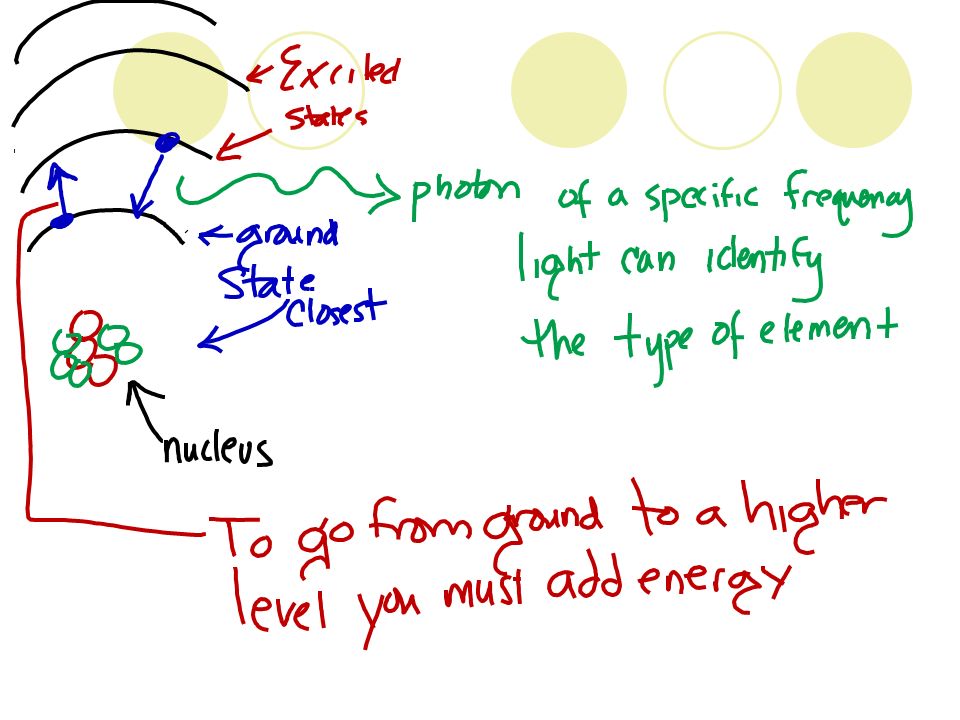 Excited
states
photon of a specific frequency
light can identify
the type of element
ground
state
closest
nucleus
To go from ground to a higher
level you must add energy